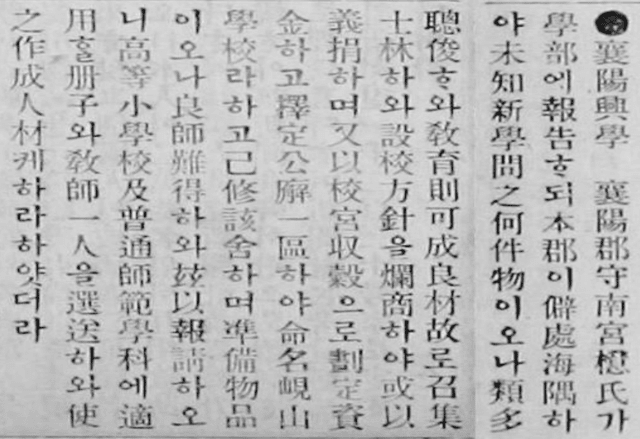 ●襄陽興學 襄陽郡守南宮檍氏가
學部에報告ᄒᆞ되本郡이僻處海隅하
야未知新學問之何件物이오나類多
聰俊ᄒᆞ와敎育則可成良材故로召集
士林하와設校方針을爛商하야或以
義捐하며又以校宮収穀으로劃定資
金하고擇定公廨一區하야命名峴山
學校라하고已修該舍하며準備物品
이오나良師難得하와玆以報請하오
니高等小學校及普通師範學科에適
用ᄒᆞᆯ册子와敎師一人을選送하와使
之作成人材케하라하얏더라